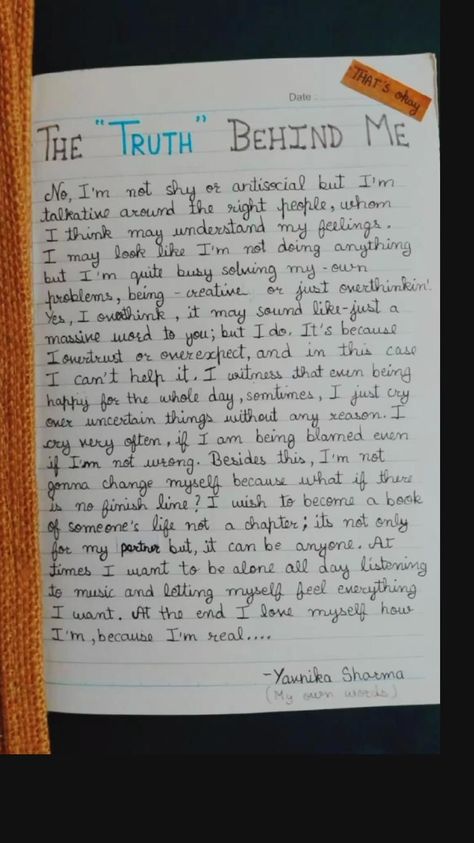 THAT's okay
Date :
THE "TRUTH" BEHIND ME
No, I'm not shy or antisocial but I'm
talkative around the right people, whom
I think may understand my feelings.
I may look like I'm not doing anything
but I'm quite busy solving my-own
problems, being-creative or just overthinkin'.
Yes, I overthink, it may sound like-just a
massive word to you; but I do. It's because
I overtrust or overexpect, and in this case
I can't help it. I witness that even being
happy for the whole day, somtimes, I just cry
over uncertain things without any reason. I
cry very often, if I am being blamed even
if I'm not wrong. Besides this, I'm not
gonna change myself because what if there
is no finish line? I wish to become a book
of someone's life not a chapter; its not only
for my partner but, it can be anyone. At
times I want to be alone all day listening
to music and letting myself feel everything
I want. At the end I love myself how
I'm, because I'm real....
-Yaunika Sharma
(My own words)